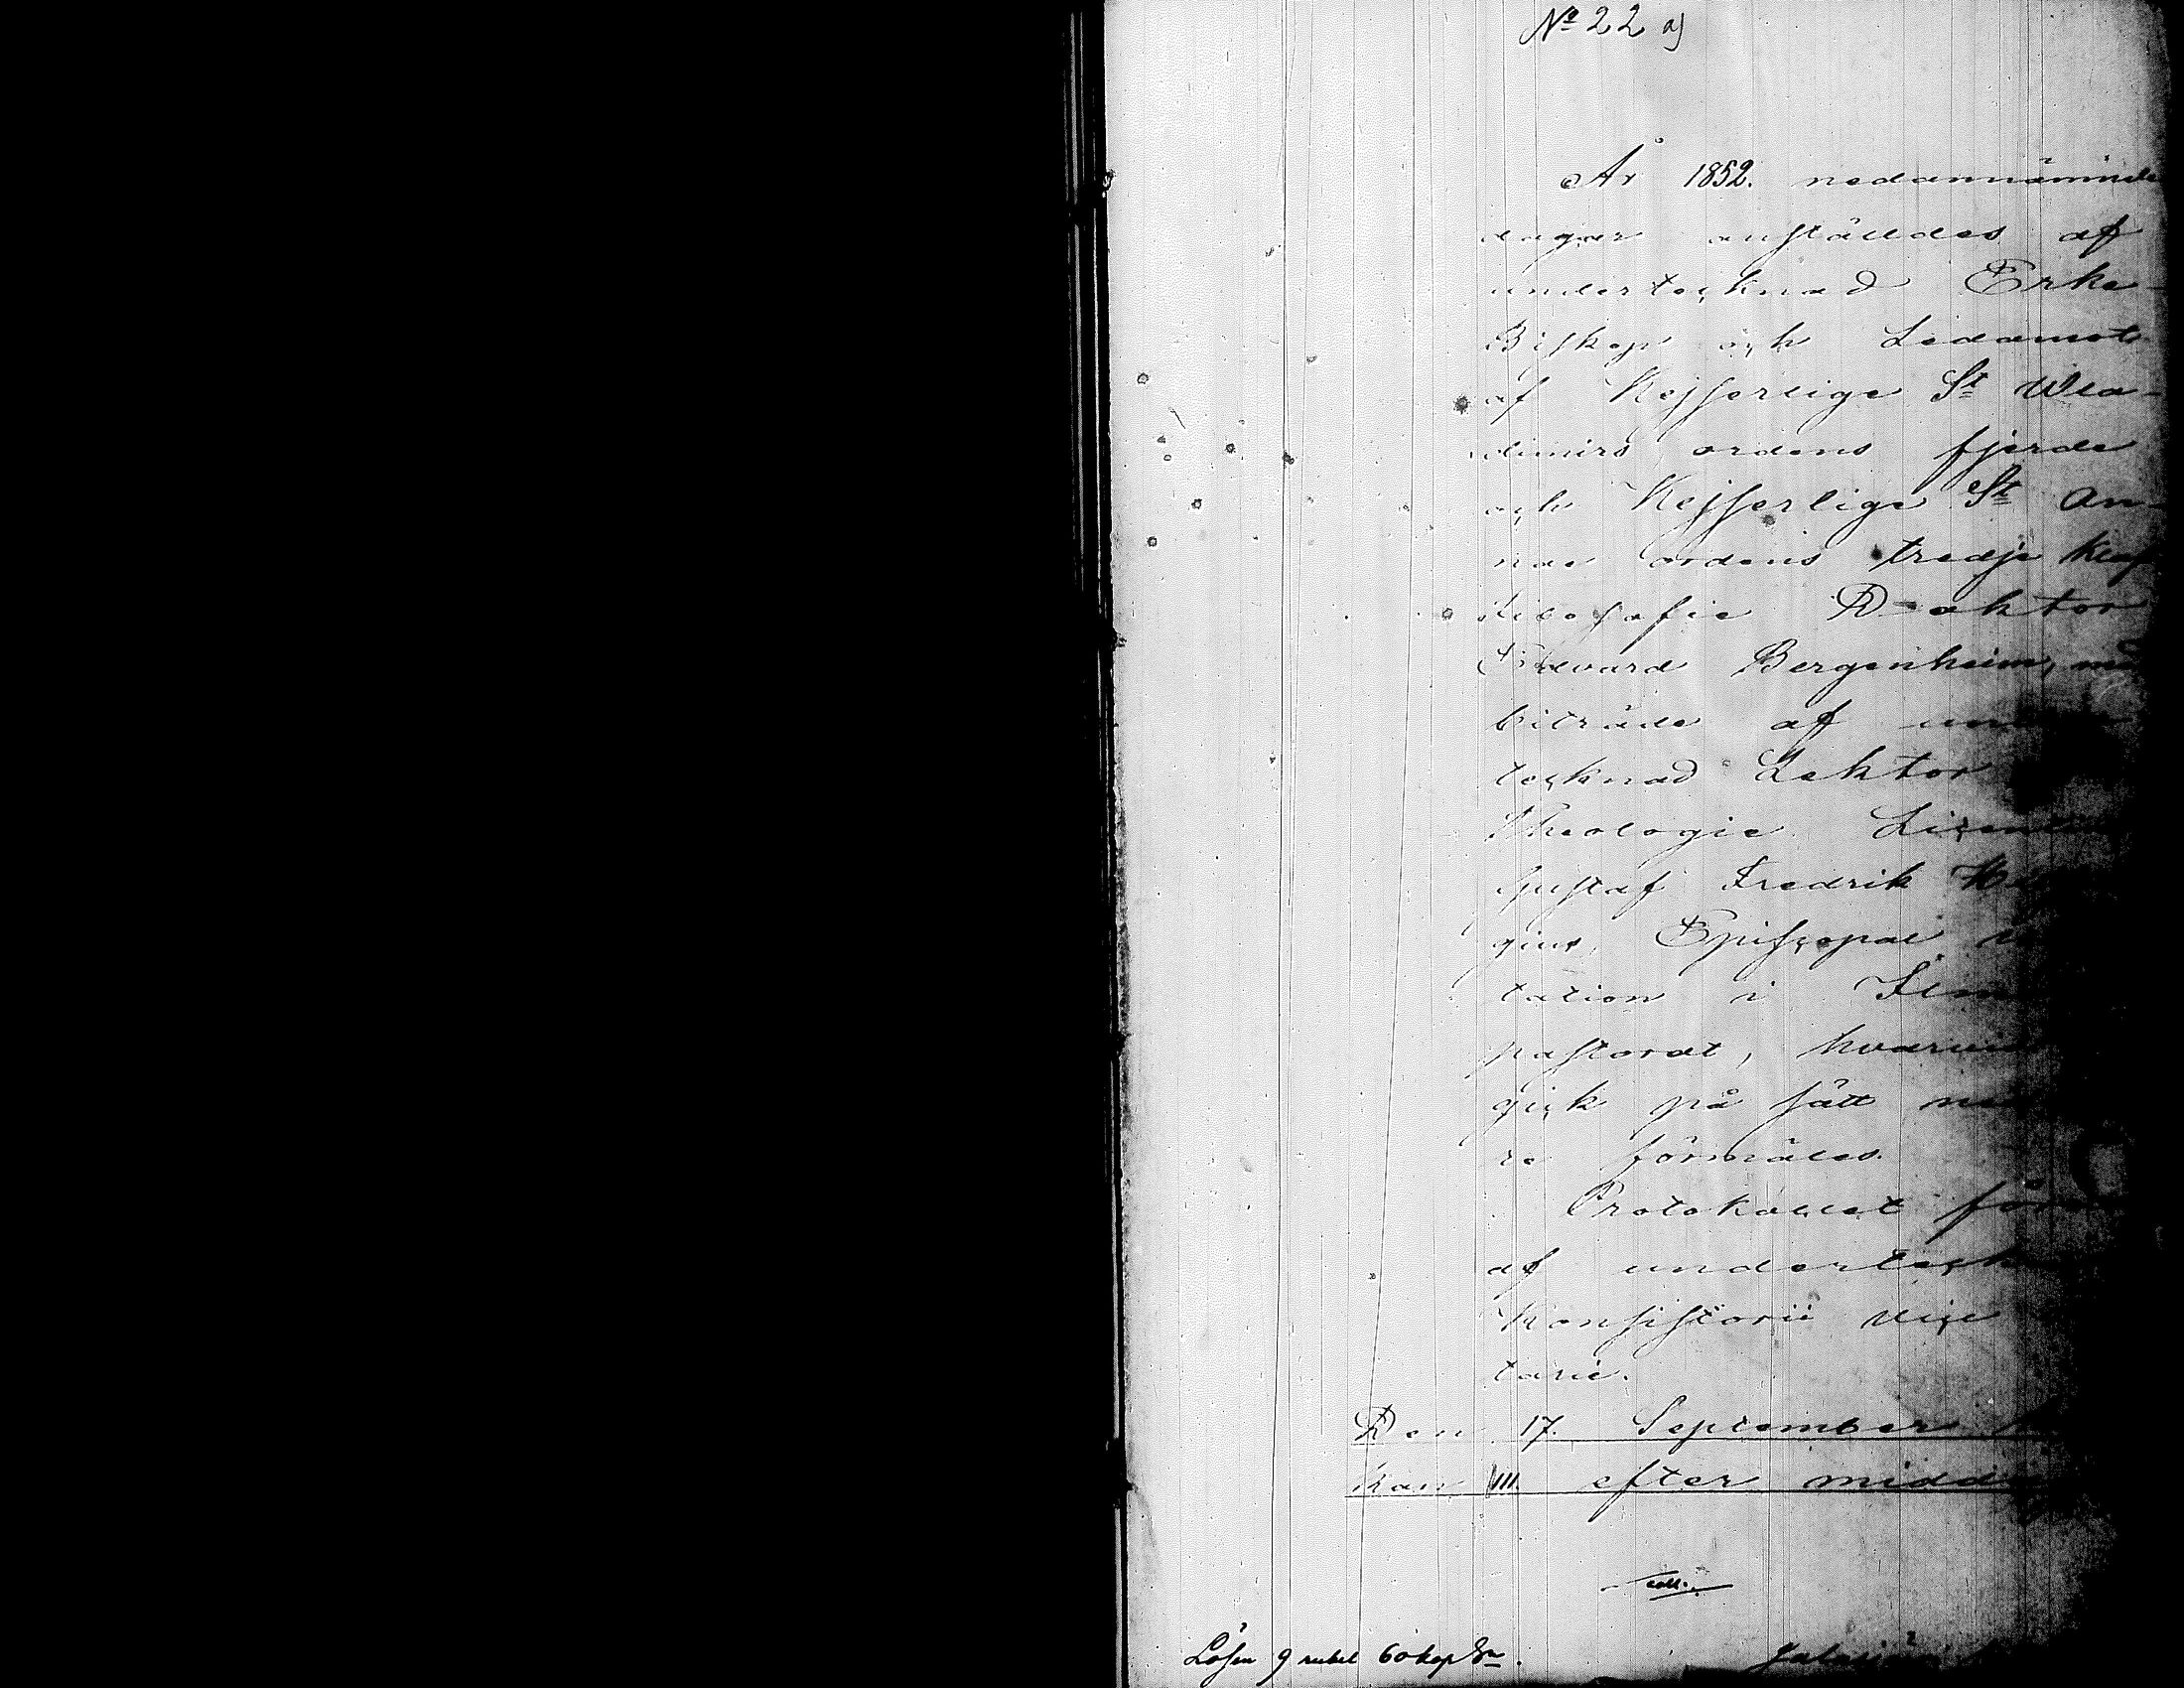 Nº 22 a)
År 1852. nedannämnde
dagar anställdes af
undertecknad Erke-
Biskop och Ledamot
af Kejserlige St Wla-
dimirs ordens fjerde
och Kejserlige St An-
nae ordens tredje klass
Filosofie Doktor
Edvard Bergenheim, med
biträde af un
tecknad Lektor
Theologie Licen
Gustaf Fredrik He
gius, Episcopal
tation i Ilm
pastorat, hvarvi
gick på sätt ne
re förmäles.
Protokollet för
af underteck
Konsistorii Vice
tarie.
Den 17. September
kan VIII. efter midd
coll.
Lösen 9 rubel 60 kop Sr.